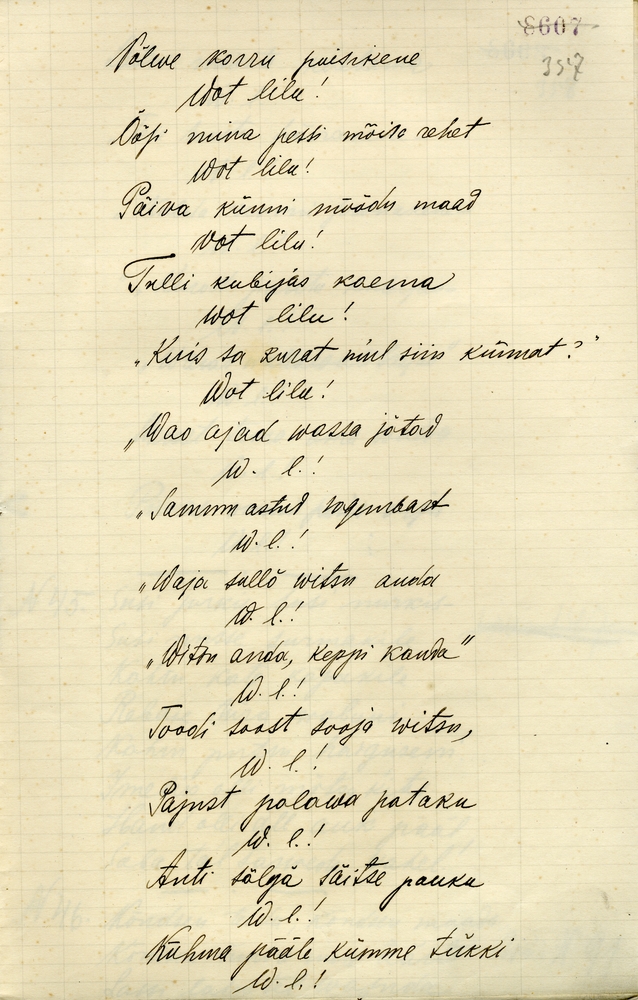 8607
357
Põlwe korru poisikene
Wot lilu!
Öösi mina pessi mõisa rehet
Wot lilu!
Päiva künni möödu maad
Vot lilu!
Tulli kubijas kaema
Wot lilu!
„Kuis sa kurat niul siin künnat?"
Wot lilu!
„Wao ajad wassa jätad
W. l.!
„Sammu astud
W. l.!
„Waja sullõ witsu anda
W. l.!
„Witsu anda, keppi kanda"
W. l.!
Toodi soost sooja witsu,
W. l.!
Pajust palawa pataku
W. l.!
Anti sälgä säitse pauku
W. l.!
Kuhma pääle kümme tükki
W. l.!